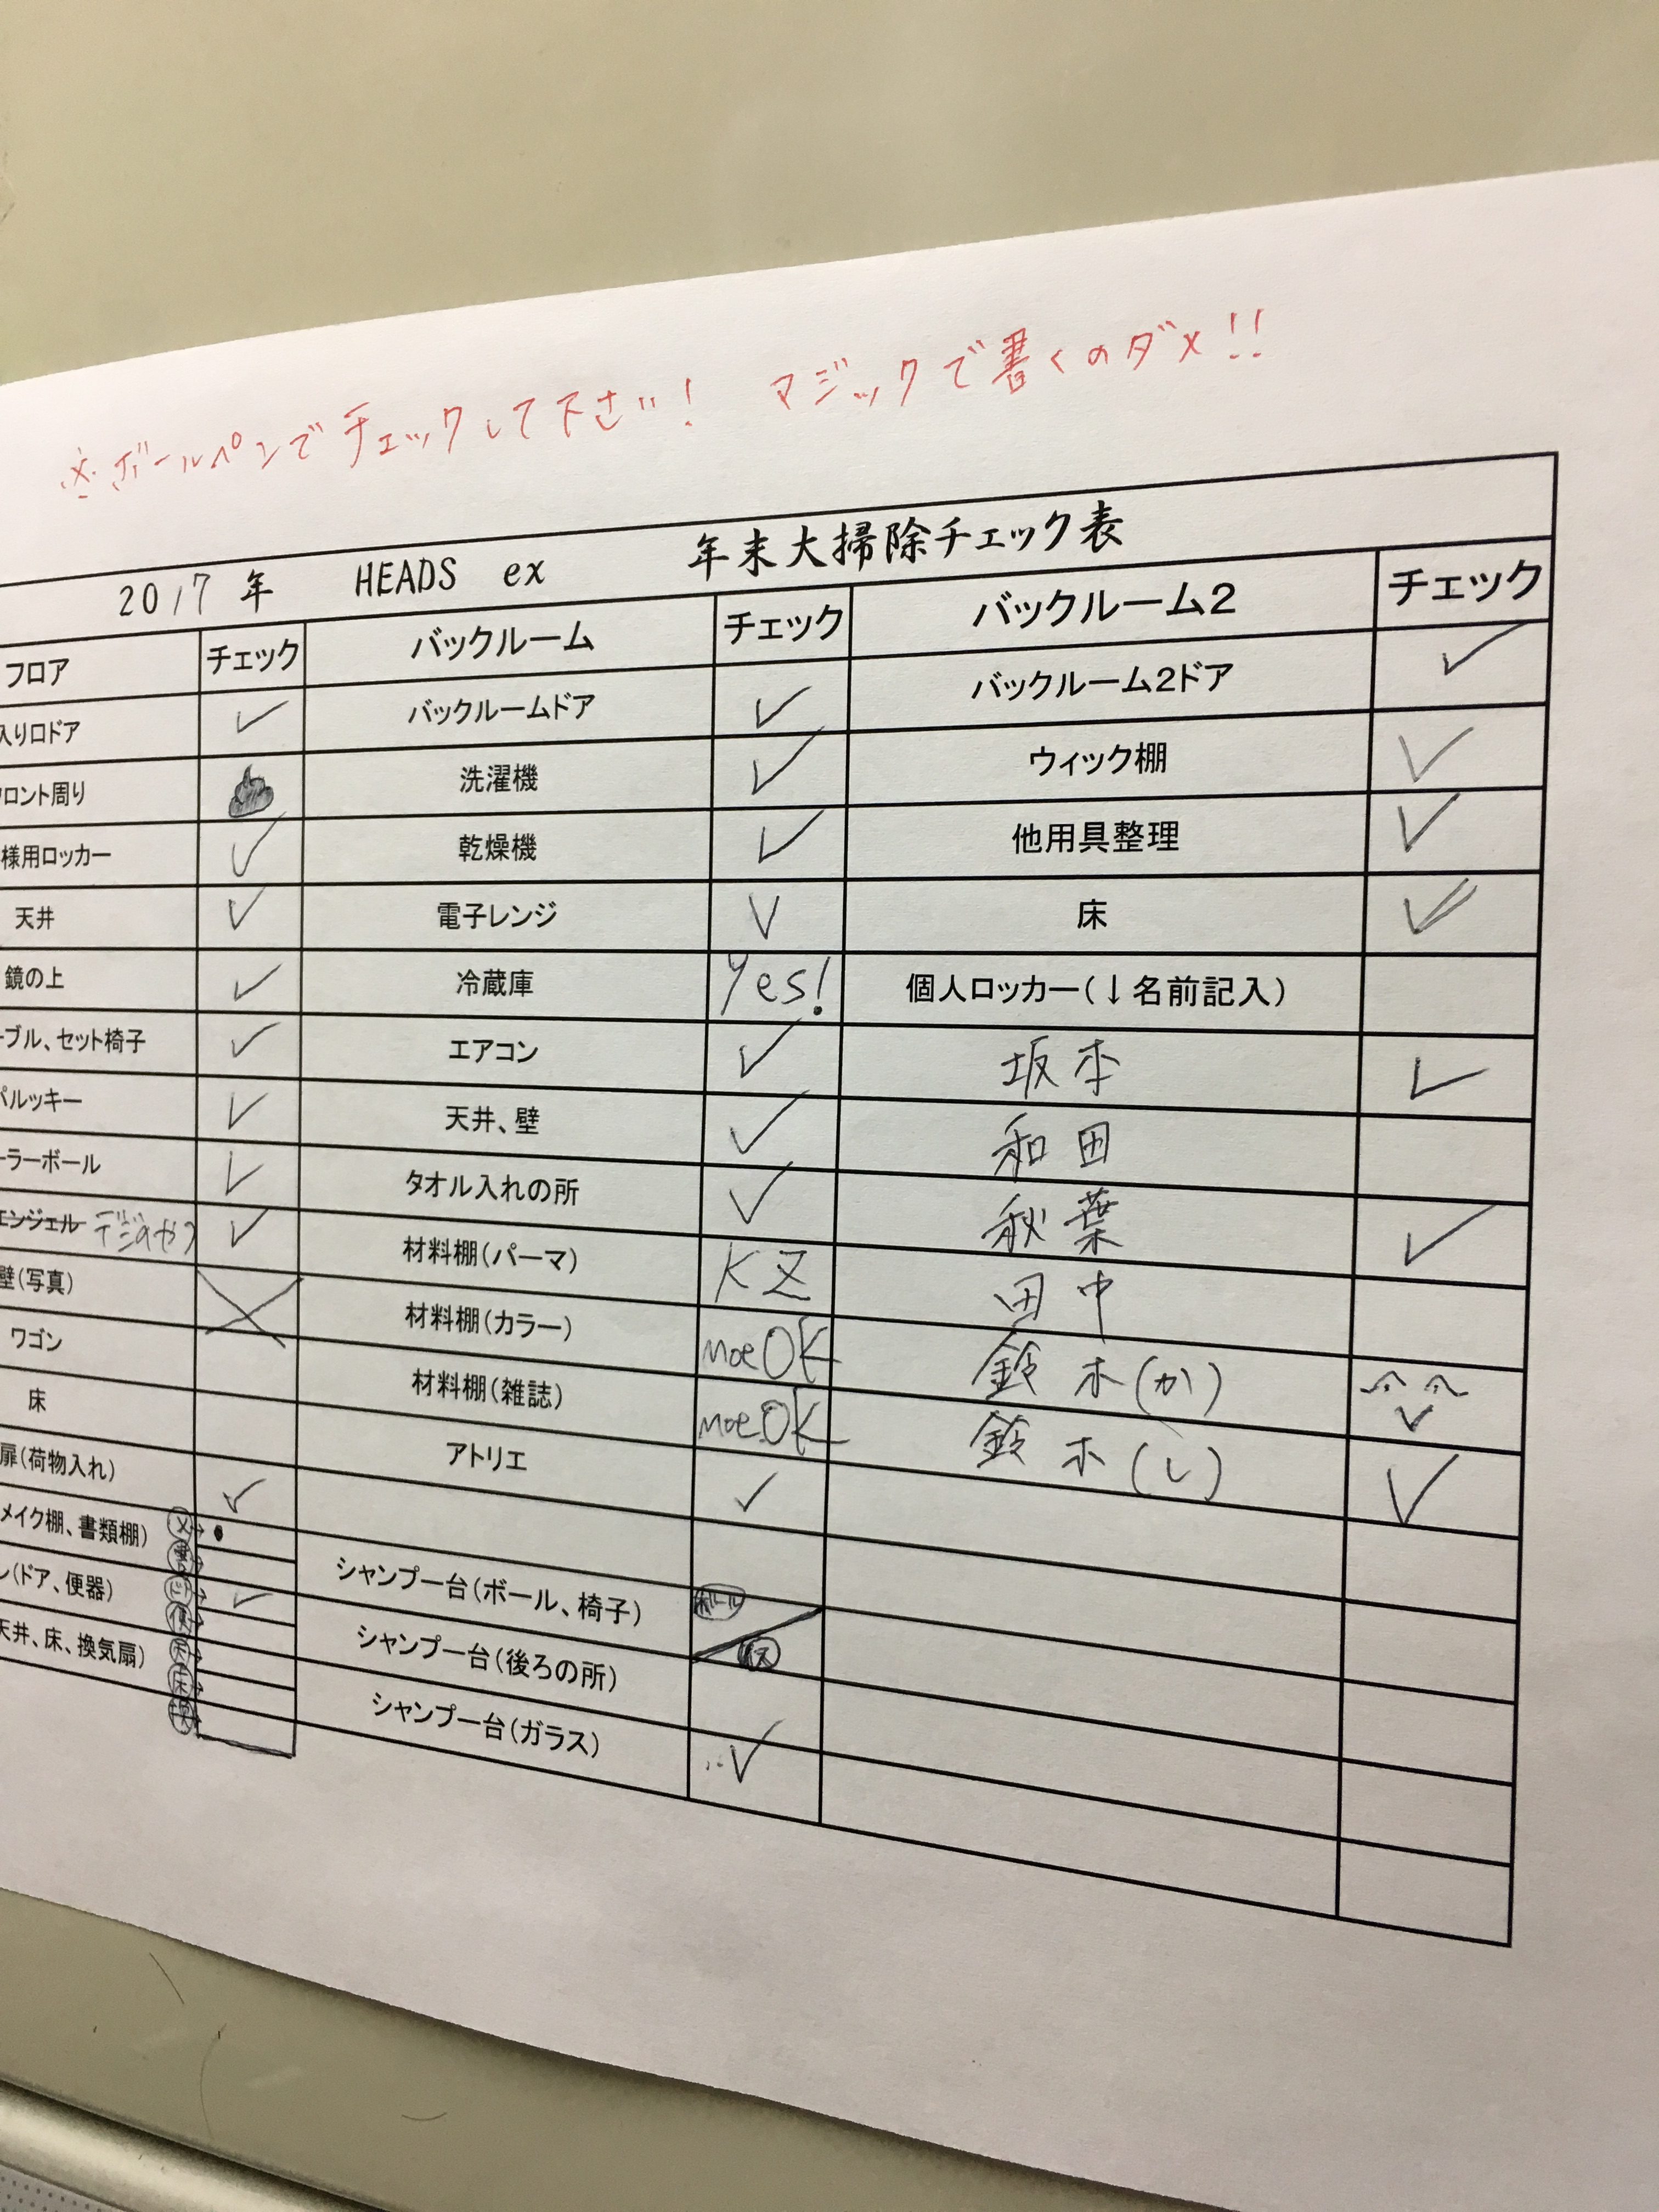 ※ボールペンでチェックして下さい! マジックで書くのダメ!!
2017年 HEADS ex 年末大掃除チェック表
フロア チェック バックルーム チェック バックルーム2 チェック
入り口ドア ✓ バックルームドア ✓ バックルーム2ドア ✓
ロント周り 洗濯機 ✓ ウィック棚 ✓
様用ロッカー ✓ 乾燥機 ✓ 他用具整理 ✓
天井 ✓ 電子レンジ ✓ 床 ✓
鏡の上 ✓ 冷蔵庫 Yes! 個人ロッカー(↓名前記入)
ーブル、セット椅子 ✓ エアコン ✓ 坂本 ✓
パルッキー ✓ 天井、壁 ✓ 和田
ーラーボール ✓ タオル入れの所 ✓ 秋葉 ✓
エンジェル ✓ 材料棚(パーマ) KZ 田中
壁(写真) 材料棚(カラー) moeOK 鈴木(か) ✓
ワゴン 材料棚(雑誌) moeOK 鈴木(し) ✓
床 アトリエ ✓
扉(荷物入れ) ✓
メイク棚、書類棚) メ→ シャンプー台(ボール、椅子) ボール イス
ン(ドア、便器) ✓ シャンプー台(後ろの所)
天井、床、換気扇) 天→ 床→ 換→ シャンプー台(ガラス) ✓